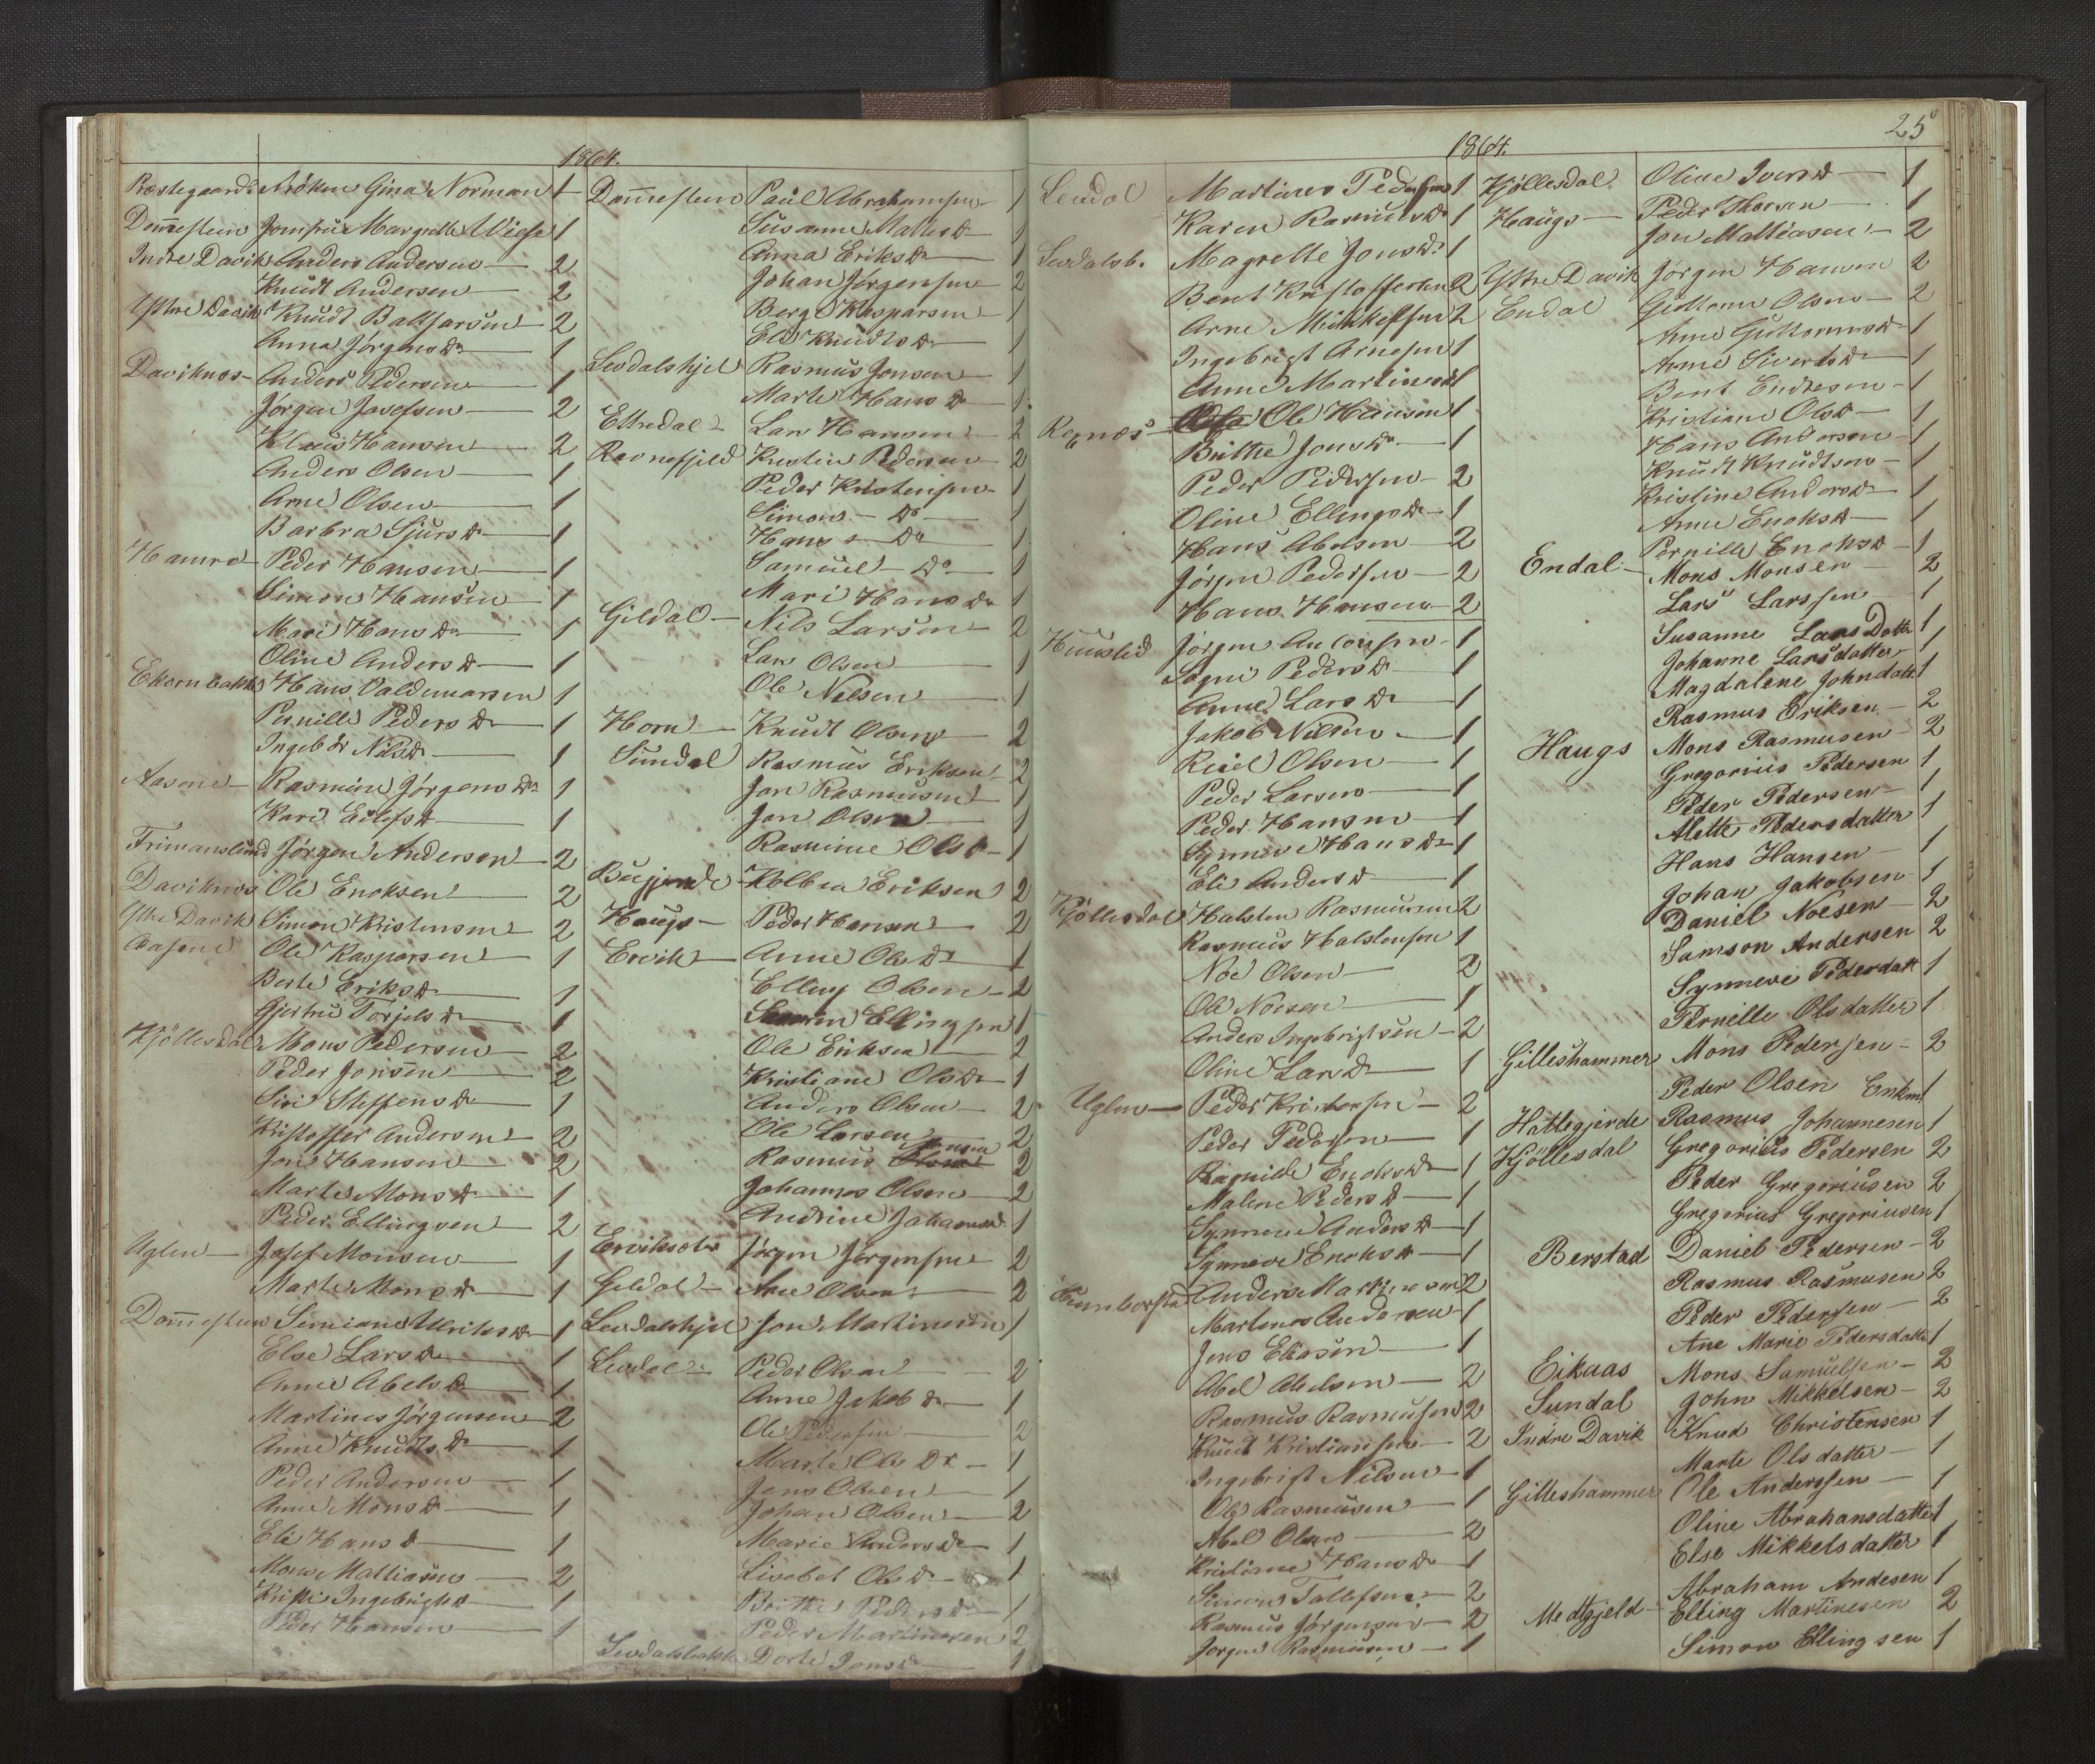 1864.
Præstegaard Frøken Gina Norman 1
Dom̄estein Jomfrue Margrethe Wiese 1
Indre Davik Anders Andersen 2
Knudt Andersen 2
Ystre Davik Knudt Baltsarsen 2
Anna Jørgensdr 1
Daviknes Anders Pedersen 1
Jørgen Josefsen 2
Klaus Hansen 2
Anders Olsen 1
Arne Olsen 1
Barbra Sjursdr 1
Hamre Peder Hansen 1
Simon Hansen 1
Mari Hansdr 1
Oline Andersdr 1
Ekornbakke Hans Valdemarsen 1
Pernille Pedersdr 1
Ingeb dr Nilsdr 1
Aasene Rasmine Jørgensdr 1
Kari Eilefsdr 1
Frimanslund Jørgen Andersen 2
Daviknes Ole Enoksen 2
Ytre Davik Simon Kristensen 2
Aasene Ole Kaspersen 1
Berte Eriksdr 1
Gjertrue Torjelsdr 1
Kjöllesdal Mons Pedersen 2
Peder Jonsen 2
Siri Steffensdr 1
Kristoffer Andersen 2
Jon Hansen 2
Marte Monsdr 1
Peder Ellingsen 2
Uglen Josef Monsen 1
Marte Monsdr 1
Dom̄estein Simiane Ulriksdr 1
Else Larsdr 1
Anne Abelsdr 1
Martines Jørgensen 2
Anne Knudtsdr 1
Peder Andersen 1
Anne Monsdr 1
Eli Hansdr 1
Mons Mathiasen 2
Kristi Ingebrigtsdr 1
Peder Hansen 1
Dom̄estein Paul Abrahamsen 1
Susanne Mattisdr 1
Anna Eriksdr 1
Johan Jørgensen 2
Berge Kasparsen 1
Eli Knudtsdr 1
Levdalshjel Rasmus Jonsen 1
Marte Hansdr 1
Ettredal Lars Hansen 2
Ravnefjeld Kristen Pedersen 2
Peder Kristensen 1
Simon Do 1
Hans Do 1
Samuel Do 1
Mari Hansdr 1
Gildal Nils Larsen 2
Lars Olsen 1
Ole Nilsen 1
Horn Knudt Olsen 2
Sundal Rasmus Eriksen 2
Jon Rasmusen 1
Jon Olsen 1
Rasmine Olsdr 1
Kolben Eriksen 2
Haugs Peder Hansen 2
Ervik Anne Olsdr 1
Elling Olsen 2
Ellingsen 1
Ole Eriksen 2
Kristiane Olsdr 1
Anders Olsen 2
Ole Larsen 2
Rasmus Olsen Hansen 2
Johannes Olsen 2
Andrine Johannesd 1
Jørgen Jørgensen 2
Gildal Arne Olsen 2
Levdalshjel Jon Martinesen 1
Levdal Peder Olsen 2
Anne Jakobdr 1
Ole Pedersen 2
Marte Olsdr 1
Jens Olsen 1
Johan Olsen 2
Marie Andersdr 1
Lisebet Olsdr 1
Britthe Pedersdr 1
Peder Martinesen 2
Levdalsbakk Dorte Jonsdr 1
25
1864.
Levdal Martines Pedersen 1
Karen Rasmusdr 1
Levdalsb. Magrethe Jonsdr 1
Bent Kristoffersen 2
Arne Mikkelsen 2
Ingebrigt Arnesen 1
Anne Martinesdr 1
Rognes Ole Hansen 1
Britthe Jonsdr 1
Peder Pedersen 2
Oline Ellingsdr 1
Hans Abelsen 2
Jørgen Pedersen 2
Hans Hansen 2
Huuslid Jørgen 1
Pedersdr 1
Anne Larsdr 1
Jakob Nilsen 1
Olsen 1
Peder Larsen 1
Peder Hansen 1
Synneve Hansdr 1
Eli Andersdr 1
Kjöllesdal Halsten Rasmusen 2
Rasmus Halstensen 1
Noe Olsen 2
Ole Noesen 1
Anders Ingebrigtsen 2
Oline Larsdr 1
Uglen Peder Kristensen 2
Peder Pedersen 1
Ragnilde Enoksdr 1
Malene Pedersdr 1
Synneve Andersdr 1
Synneve Enoksdr 1
Anders Martinesen 2
Martines Andersen 1
Jens Eliasen 1
Abel Abelsen 2
Rasmus Rasmusen 2
Knudt Kristiansen 2
Ingebrigt Nilsen 1
Ole Rasmusen 1
Abel Olsen 2
Kristine Hansdr 1
Simon Tollefsen 2
Rasmus Jørgensen 2
Jørgen Rasmusen 1
Kjöllesdal Oline Iversdr 1
Haugs Peder Thorsen 1
Jon Mathiasen 2
Ystre Davik Jørgen Hansen 2
Endal Guttorm Olsen 2
Anne Guttormsdr 1
Anne Sivertsdr 1
Bent Endresen 1
Kristiane Olsdr 1
Hans Andersen 1
Knudt Knudtsen 1
Kristine Andersdr 1
Anne Enoksdr 1
Pernille Enoksdr 1
Endal Mons Monsen 2
Lars Larssen 1
Susanne Lars Dotter 1
Johanne Larsdatter 1
Magdalene Johndatt 1
Rasmus Eriksen 2
Haugs Mons Rasmusen 2
Gregorius Pedersen 1
Peder Pedersen 1
Alette Pedersdatter 1
Hans Hansen 1
Johan Jakobsen 1
Daniel Noesen 2
Samson Andersen 2
Synneve Pedersdatt 1
Pernille Olsdatter 1
Gilleshammer Mons Pedersen 2
Peder Olsen Enkm 1
Hattegjerde Rasmus Johannesen 1
Kjöllesdal Gregorius Pedersen 2
Peder Gregoriusen 2
Gregorius Gregoriusen 1
Berstad Daniel Pedersen 2
Rasmus Rasmusen 2
Peder Pedersen 2
Ane Marie Pedersdatter 1
Eikaas Mons Samuelsen 2
Sundal John Mikkelsen 2
Indre Davik Knud Christensen 1
Marte Olsdatter 1
Gilleshammer Ole Anderssen 1
Oline Abrahamsdatter 1
Else Mikkelsdatter 1
Abraham Andesen 1
Medtgjeld Elling Martinesen 2
Simon Ellingsen 1